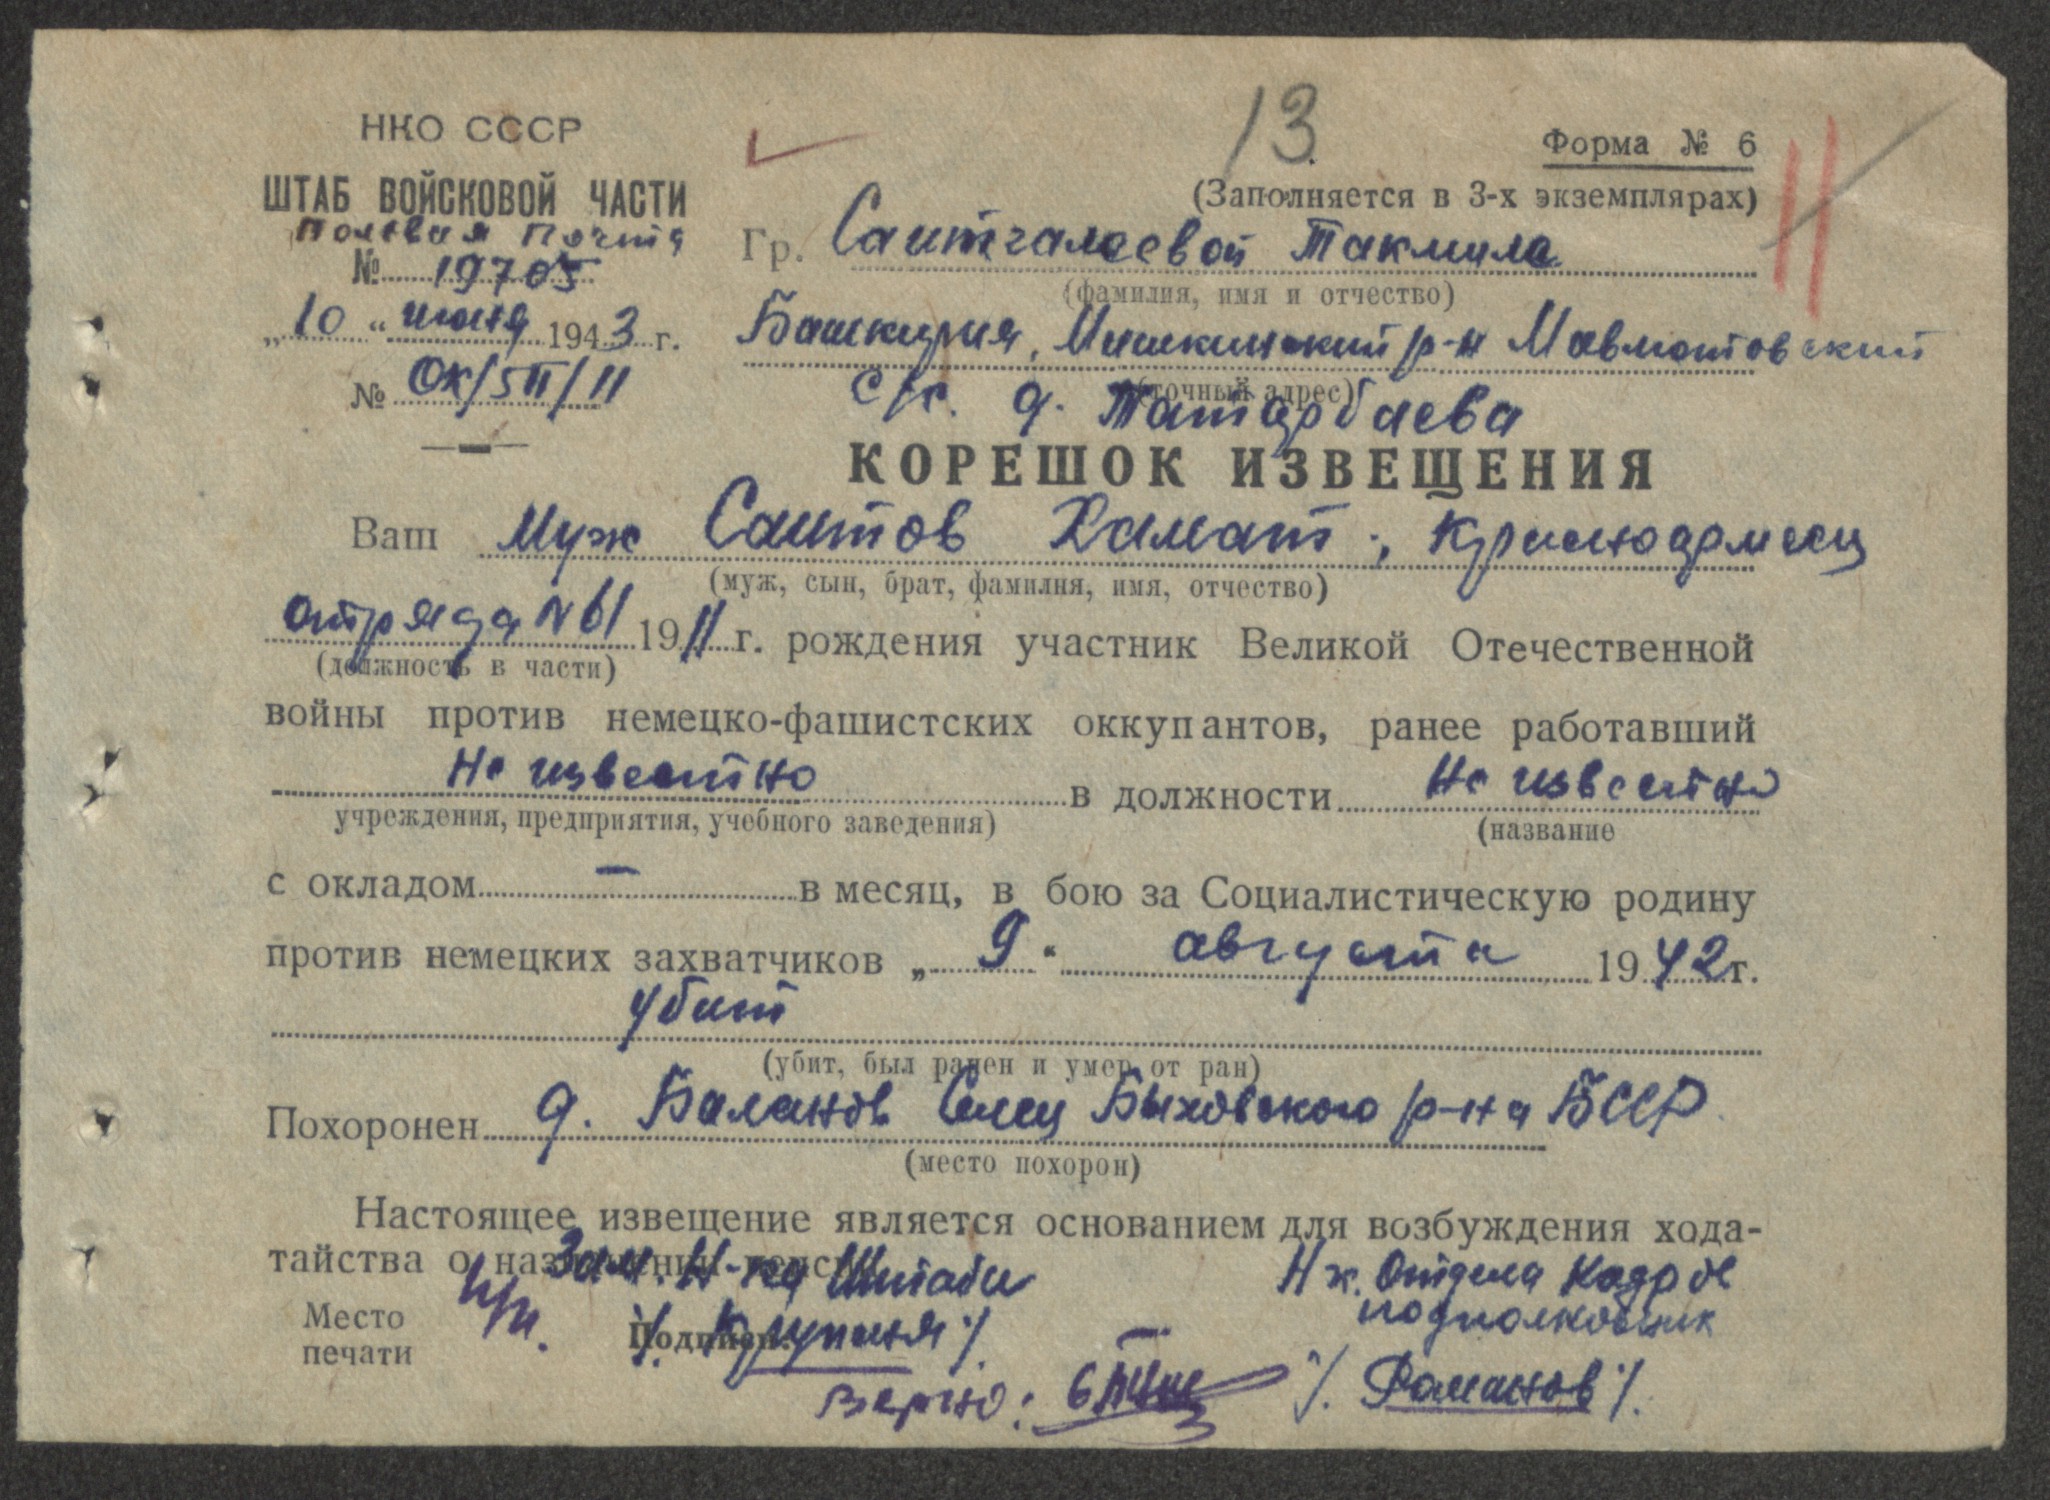 13.
НКО СССР
Форма № 6
ШТАБ ВОЙСКОВОЙ ЧАСТИ
(Заполняется в 3-х экземплярах)
Полевая Почта
№ 19705
Гр. Саитгалеевой Такмила
(фамилия, имя и отчество)
„10“ июня 1943 г.
Башкирия, Мишкинский р-н Мавлютовский
(точный адрес)
№ ОК/5П/11
с/с. д. Татарбаева
КОРЕШОК ИЗВЕЩЕНИЯ
Ваш Муж Саитов Хамат, Красноармеец
(муж, сын, брат, фамилия, имя, отчество)
отряда №61 1911 г. рождения участник Великой Отечественной
(должность в части)
войны против немецко-фашистских оккупантов, ранее работавший
Не известно в должности Не известно
учреждения, предприятия, учебного заведения) (название
с окладом — в месяц, в бою за Социалистическую родину
против немецких захватчиков „9“ августа 1942 г.
убит
(убит, был ранен и умер от ран)
Похоронен д. Баланов Селец Быховского р-на БССР
(место похорон)
Настоящее извещение является основанием для возбуждения хода-
тайства о назначении пенсии
Зам. Н-ка Штаба
Нач. Отдела Кадров
подполковник
Место
печати
п/п.
Подписи:
/Крупеня/
Верно:
/Романов/.